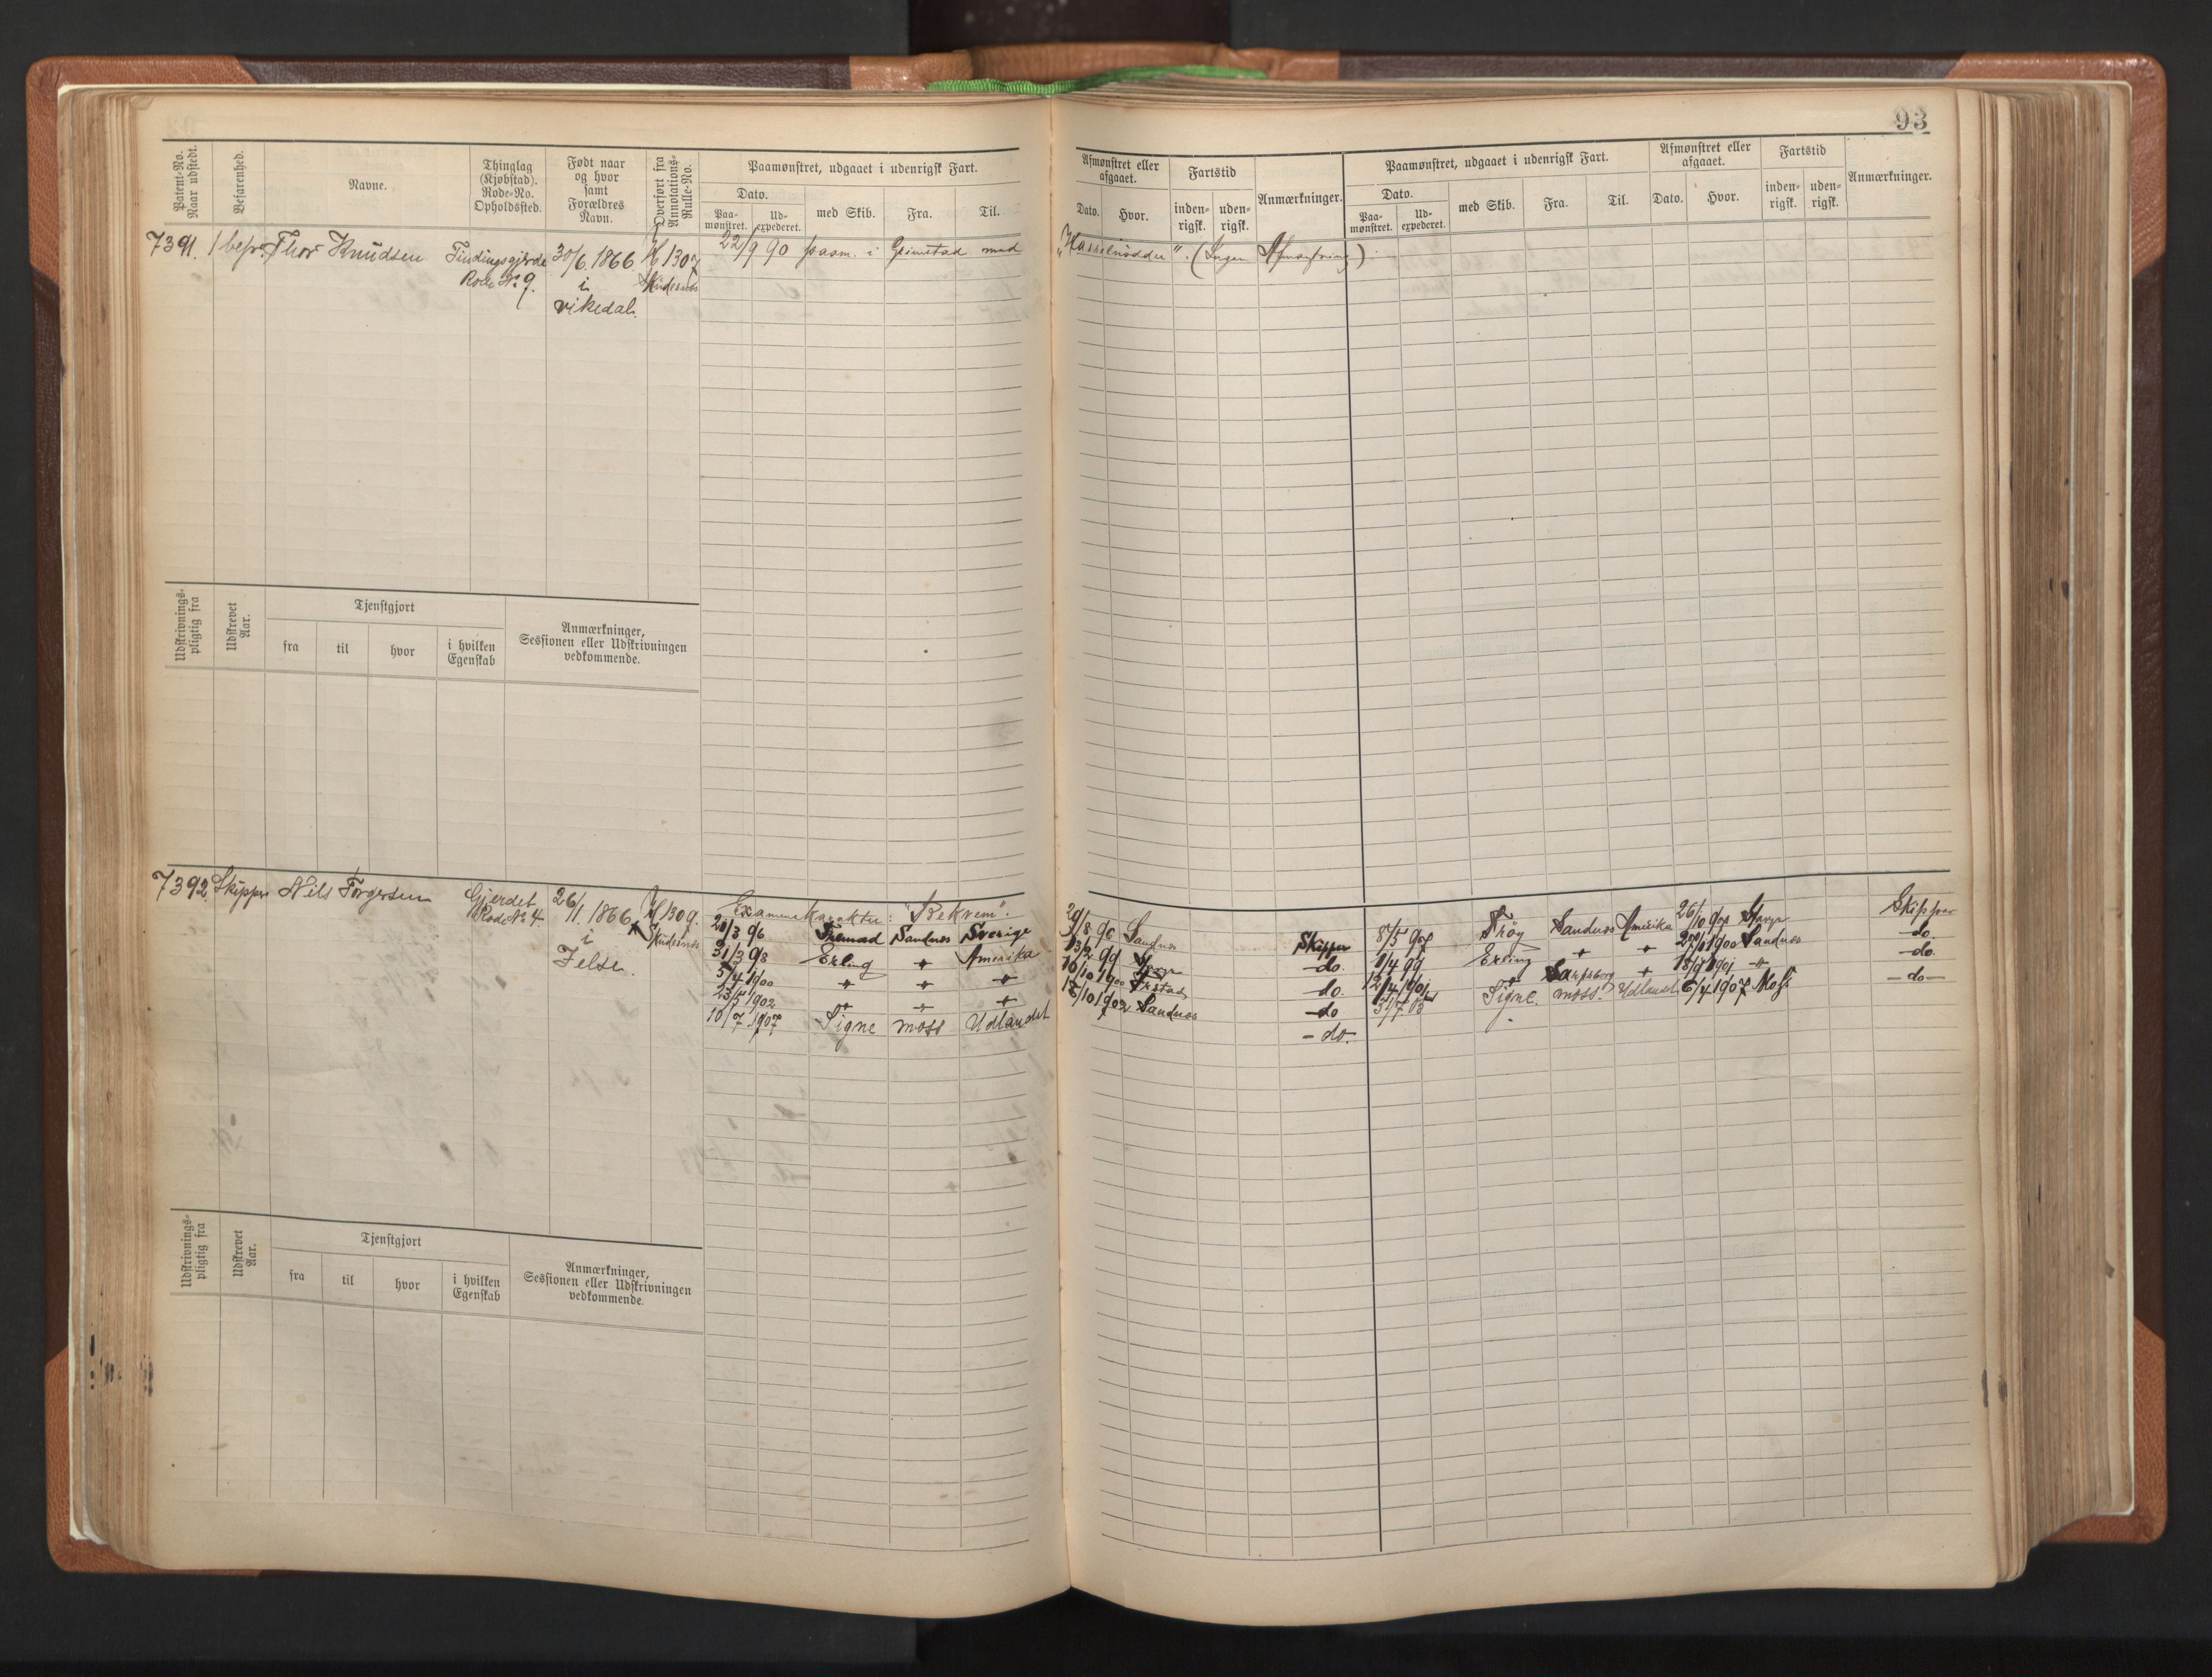 93
Patent-No. Naar udstedt.
Befarenhed.
Navne.
Thinglag (Kjøbstad). Rode-No. Opholdssted.
Født naar og hvor samt Forældres Navn.
Overført fra Annotations-Rulle-No.
Paamønstret, udgaaet i udenrigsk Fart.
Dato.
Paa-mønstret.
Ud-expederet.
med Skib.
Fra.
Til.
Afmønstret eller afgaaet.
Dato.
Hvor.
Fartstid
inden-rigsk.
uden-rigsk.
Anmærkninger.
Paamønstret, udgaaet i udenrigsk Fart.
Dato.
Paa-mønstret.
Ud-expederet.
med Skib.
Fra.
Til.
Afmønstret eller afgaaet.
Dato.
Hvor.
Fartstid
inden-rigsk.
uden-rigsk.
Anmærkninger.
7391. Thor Knudsen
Rode No 9.
30/6. 1866
i
Vikedal.
H 1307
Skudesnes
22/9 90 paam. i Grimstad med
(Ingen Afmønstring)
Udskrivnings-pligtig fra
Udskrevet Aar.
Tjenstgjort
fra
til
hvor
i hvilken Egenskab
Anmærkninger, Sessionen eller Udskrivningen vedkommende.
7392. Skipper Nils Torgersen
Gjerdet
Rode No 4.
26/11. 1866
i
Jelse.
H 1309.
Skudesnes
Examenskarakter: "Bekvem".
Fremad Sandnes Sverige
31/3 98 Erling " Amerika
5/4 1900 " " "
23/5 1902 " " "
10/7 1907 Signe Moss Udlandet
29/8 96 Sandnes Skipper
13/2 99 do.
16/10 1900 do.
18/10 1902 Sandnes do
do.
8/5 97 Frøy Sandnes Amerika 26/10 97 Skipper
1/4 99 Erling " " 1900 Sandnes do.
12/4 1901 " Sarpsborg " 1901 " do.
Signe. Moss. Udlandet 6/4 1907 Moss do
Udskrivnings-pligtig fra
Udskrevet Aar.
Tjenstgjort
fra
til
hvor
i hvilken Egenskab
Anmærkninger, Sessionen eller Udskrivningen vedkommende.